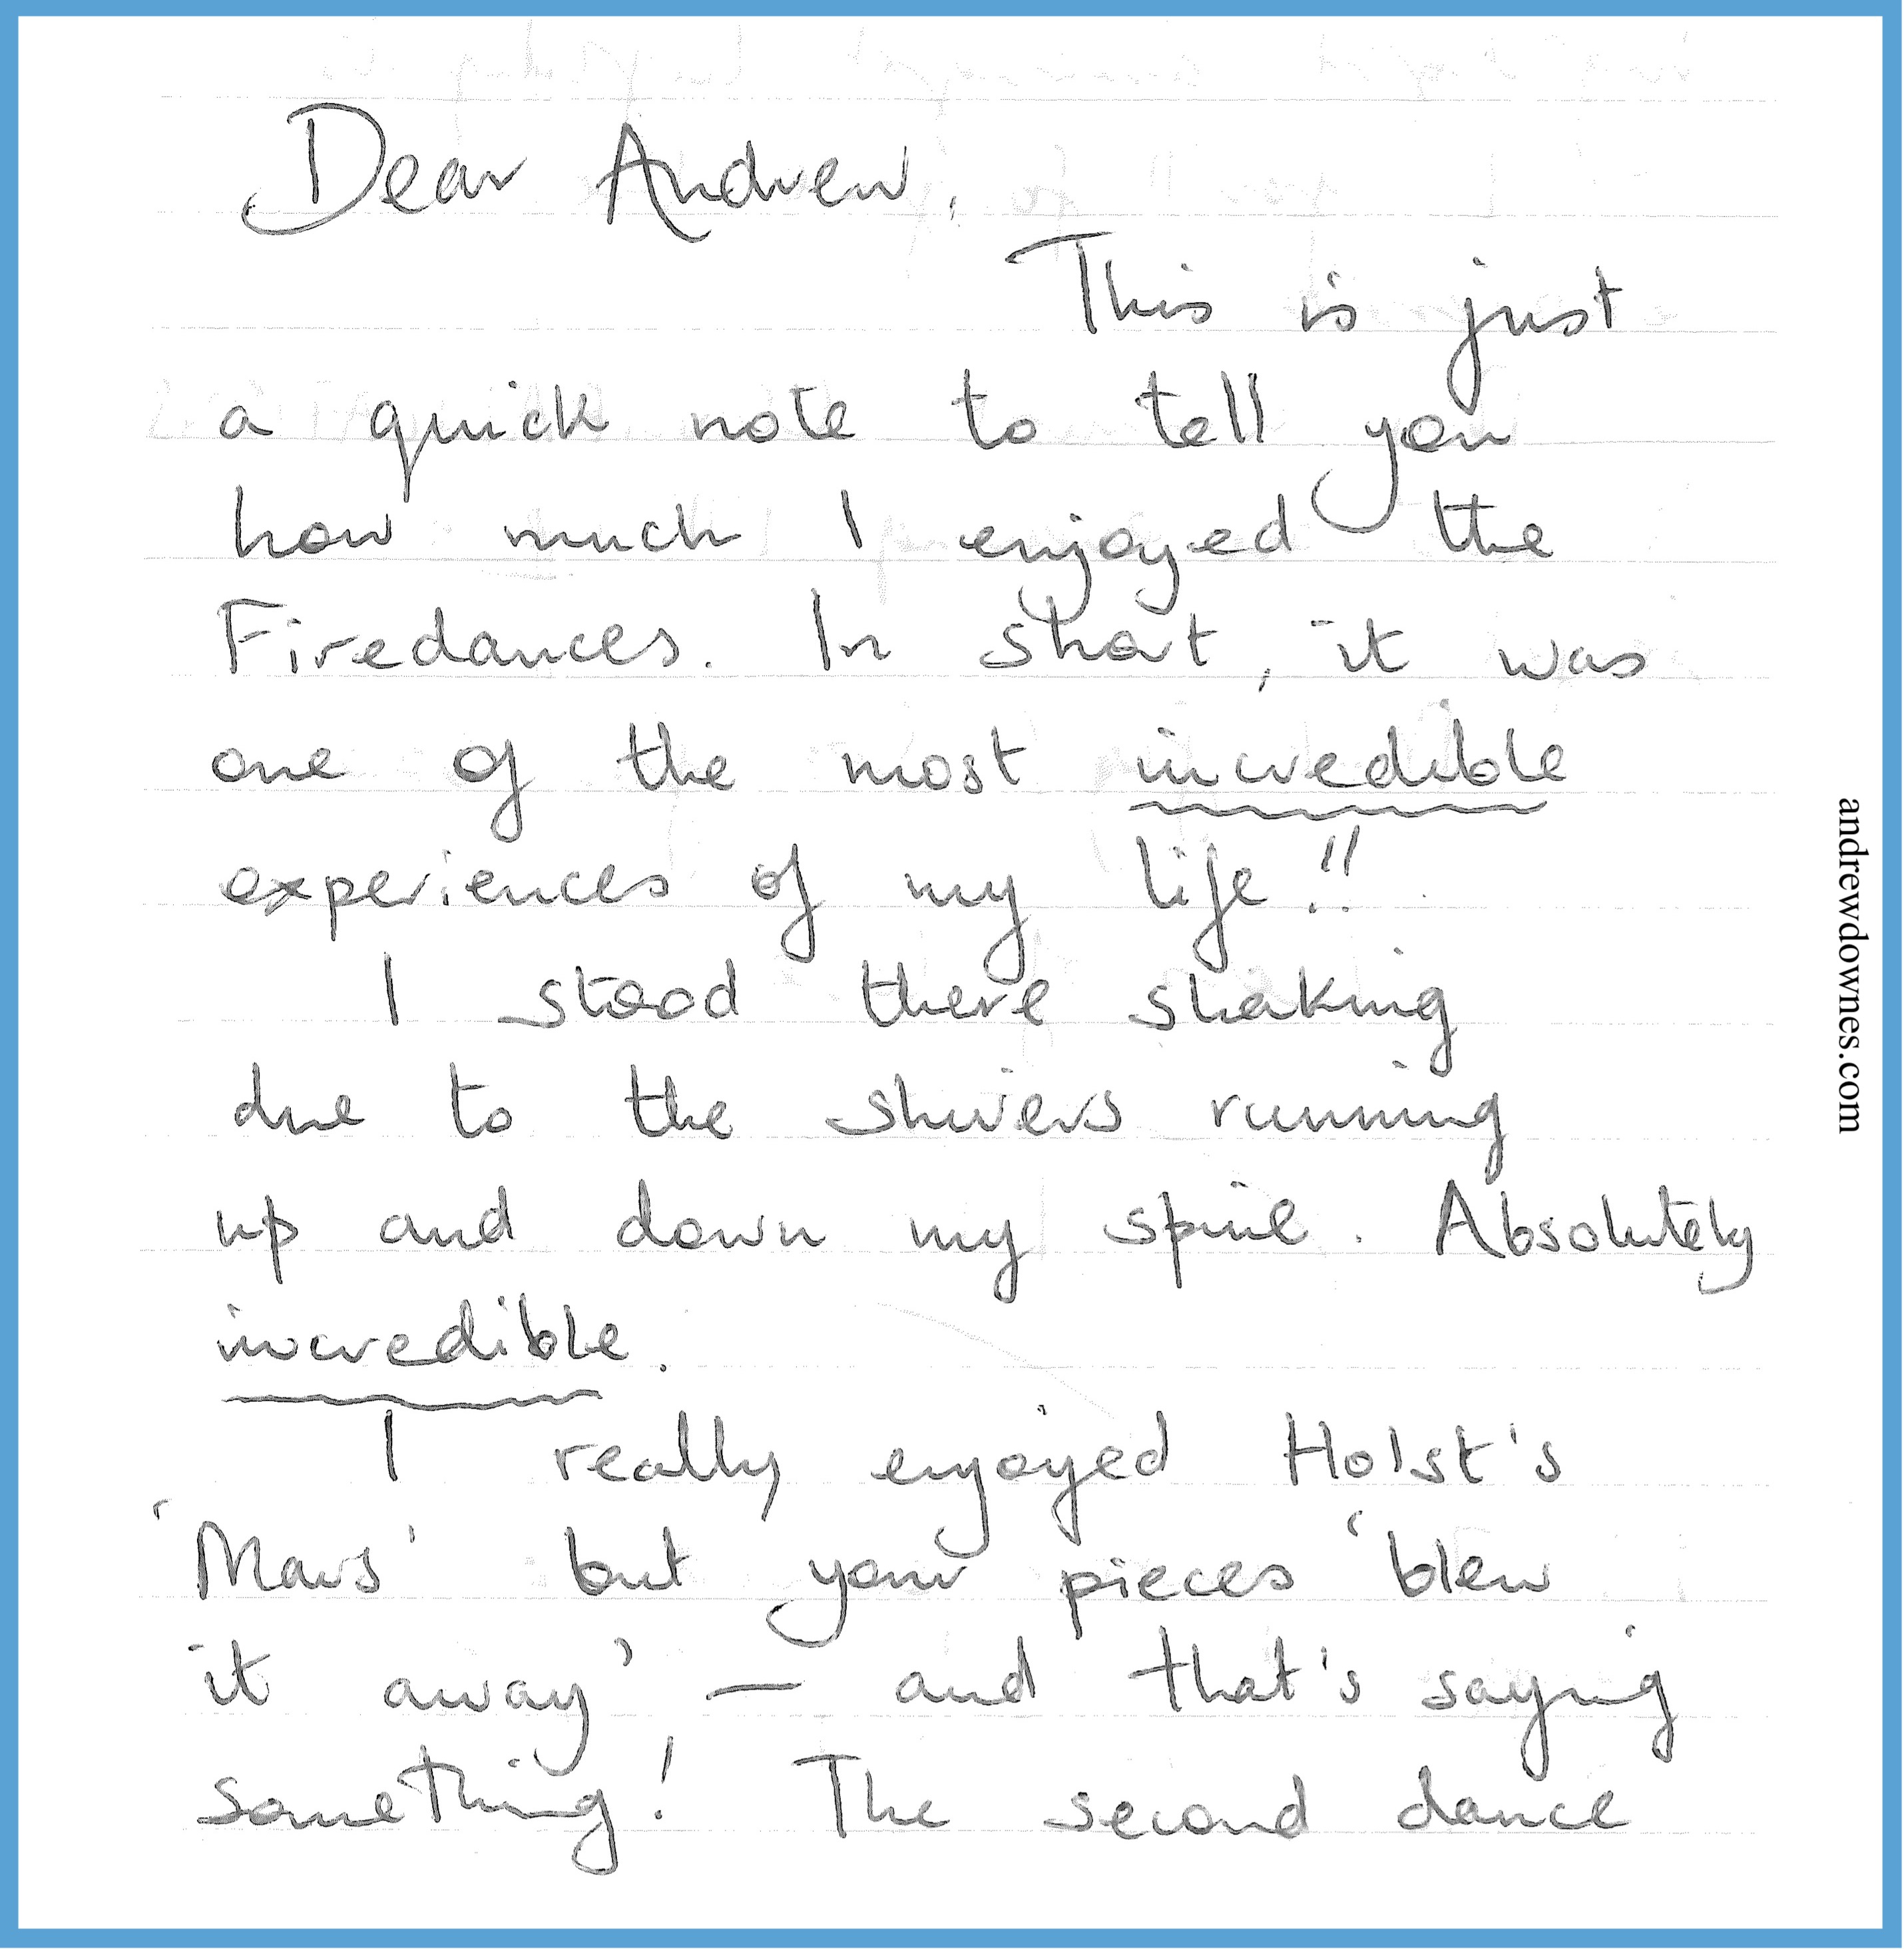 Dear Andrew,
This is just
a quick note to tell you
how much I enjoyed the
Firedances. In short, it was
one of the most incredible
experiences of my life!!
I stood there shaking
due to the shivers running
up and down my spine. Absolutely
incredible.
I really enjoyed Holst's
'Mars' but your pieces 'blew
it away' — and that's saying
something! The second dance
andrewdownes.com